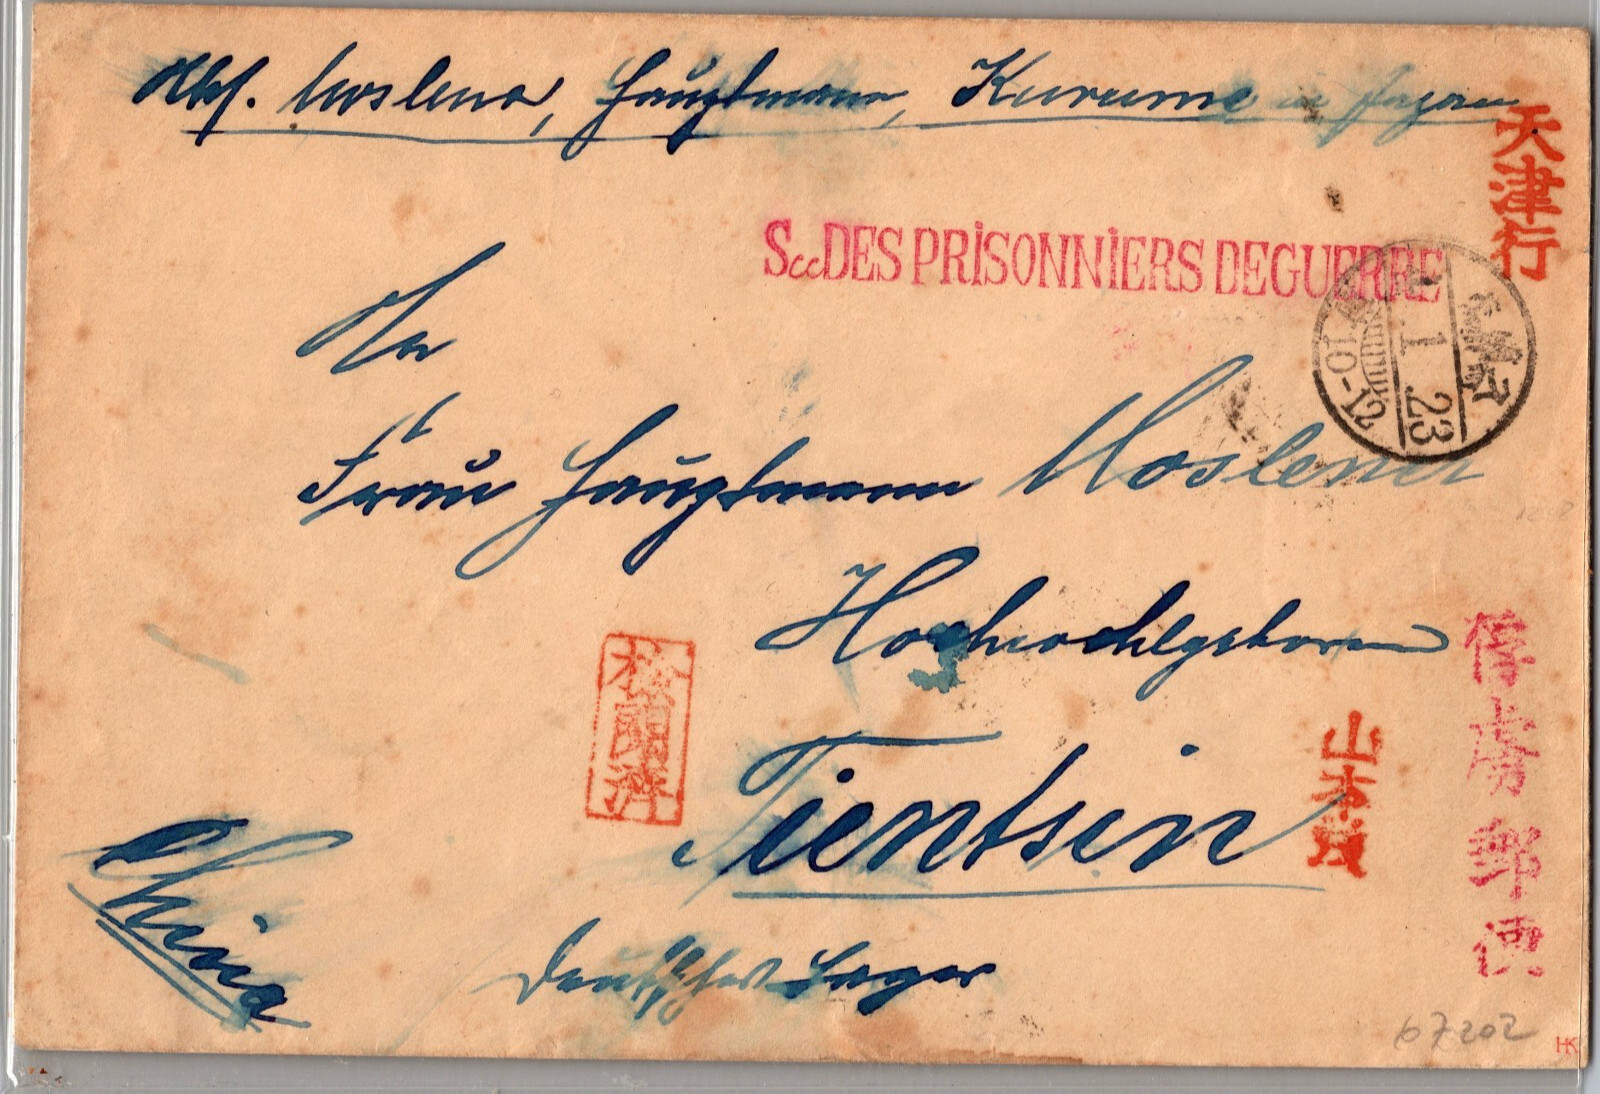 Abs. Moslener, Hauptmann, Kurume in Japan
天津行
Scc DES PRISONNIERS DE GUERRE
1 1 23
10-12
An
Frau Hauptmann Moslener
Hochwohlgeboren
Tientsin
Deutsches Lager
China
山本
俘虜郵便
67202
HK